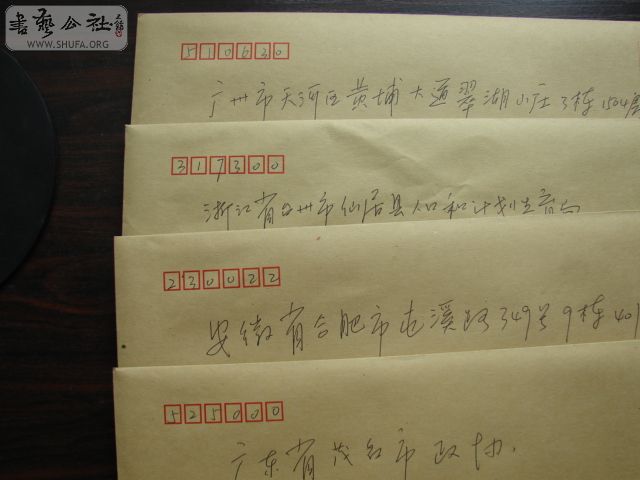 書藝公社
WWW.SHUFA.ORG
510630
广州市天河区黄埔大道翠湖山庄3栋1504房
317300
浙江省台州市仙居县人口和计划生育局
230022
安徽省合肥市屯溪路349号9栋401
525000
广东省茂名市政协.